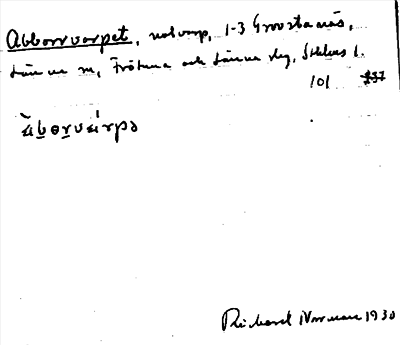 Abborrvarpet, notvarp, 1-3 Grovstanäs,
Länna sn, Frötuna och Länna skg, Sthlms l.
101 237
ăbơrvárpə
Richard Norrman 1930